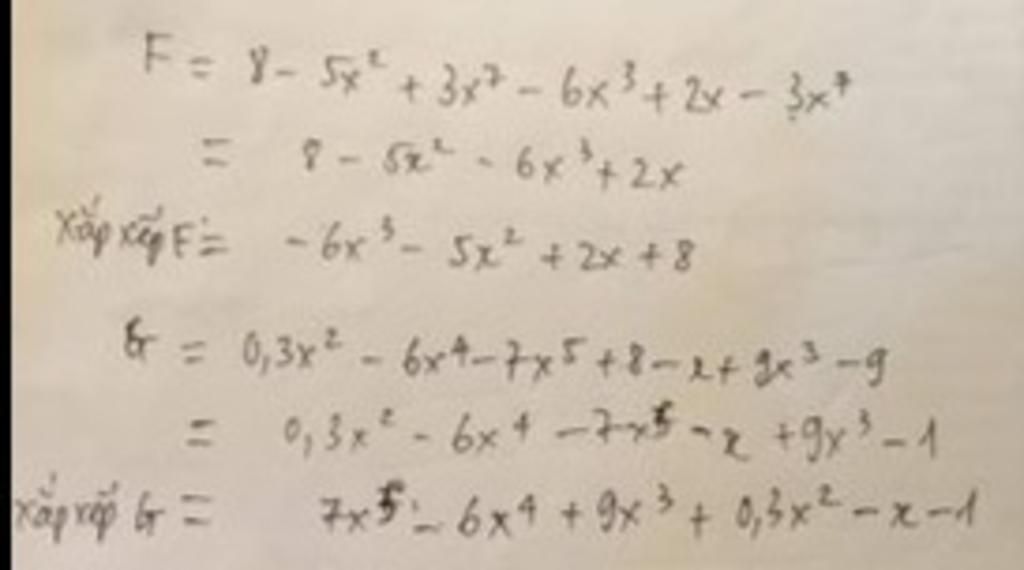 F = 8 - 5x² + 3x⁷ - 6x³ + 2x - 3x⁷
= 8 - 5x² - 6x³ + 2x
xắp xếp F = - 6x³ - 5x² + 2x + 8
G = 0,3x² - 6x⁴ - 7x⁵ + 8 - x + 9x³ - 9
= 0,3x² - 6x⁴ - 7x⁵ - x + 9x³ - 1
xắp xếp G = 7x⁵ - 6x⁴ + 9x³ + 0,3x² - x - 1